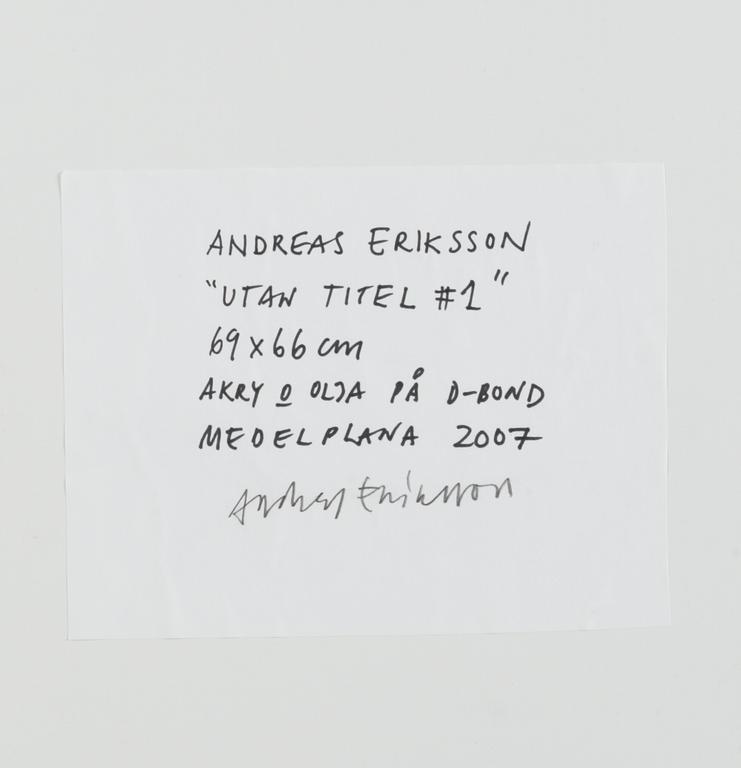 ANDREAS ERIKSSON
"UTAN TITEL #1"
69 x 66 cm
AKRY O OLJA PÅ D-BOND
MEDELPLANA 2007
Andreas Eriksson